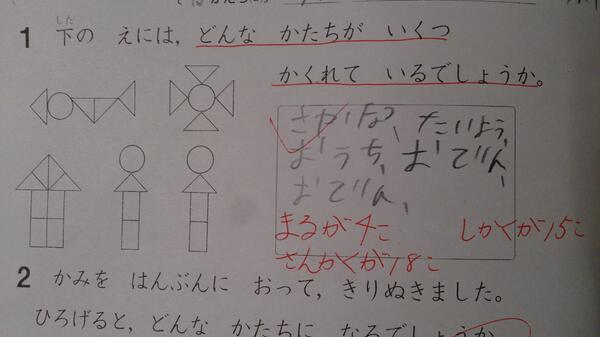 1 下の えには, どんな かたちが いくつ
した
かくれて いるでしょうか。
さかな、たいよう、
おうち、おでん、
おでん、
まるが4こ しかくが15こ
さんかくが18こ
2 かみを はんぶんに おって, きりぬきました。
ひろげると, どんな かたちに なるでしょうか